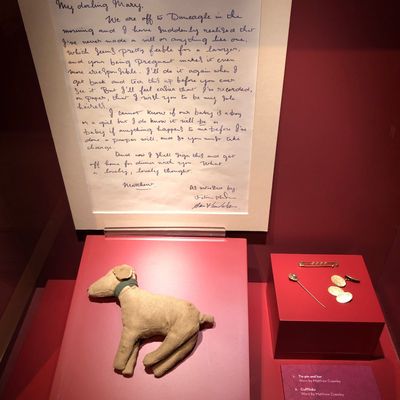 My darling Mary.
We are off to Duneagle in the
morning and I have suddenly realised that
I've never made a will or anything like one,
which seems pretty feeble for a lawyer,
and you being pregnant makes it even
more irresponsible. I'll do it again when I
get back and tear this up before you ever
see it. But I'll feel easier that I've recorded,
on paper, that I wish you to be my sole
heiress.
I cannot know if our baby is a boy
or a girl but I do know it will be a
baby if anything happens to me before I've
done a proper will, and so you must take
charge.
And now I shall sign this and get
off home for dinner with you. What
a lovely, lovely thought.
Matthew
As witnessed by
Tie pin and bar
Worn by Matthew Crawley
Cufflinks
Worn by Matthew Crawley